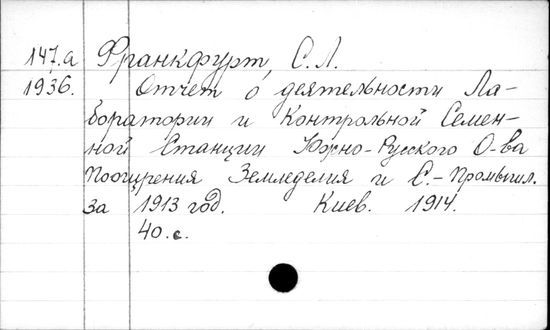 147.а Франкфурт, С. Л.
1936. Отчет о деятельности Ла-
боратории и Контрольной Семен-
ной Станции Южно-Русского О-ва
Поощрения Земледелия и С.-Промышл.
за 1913 год. Киев. 1914.
40.с.